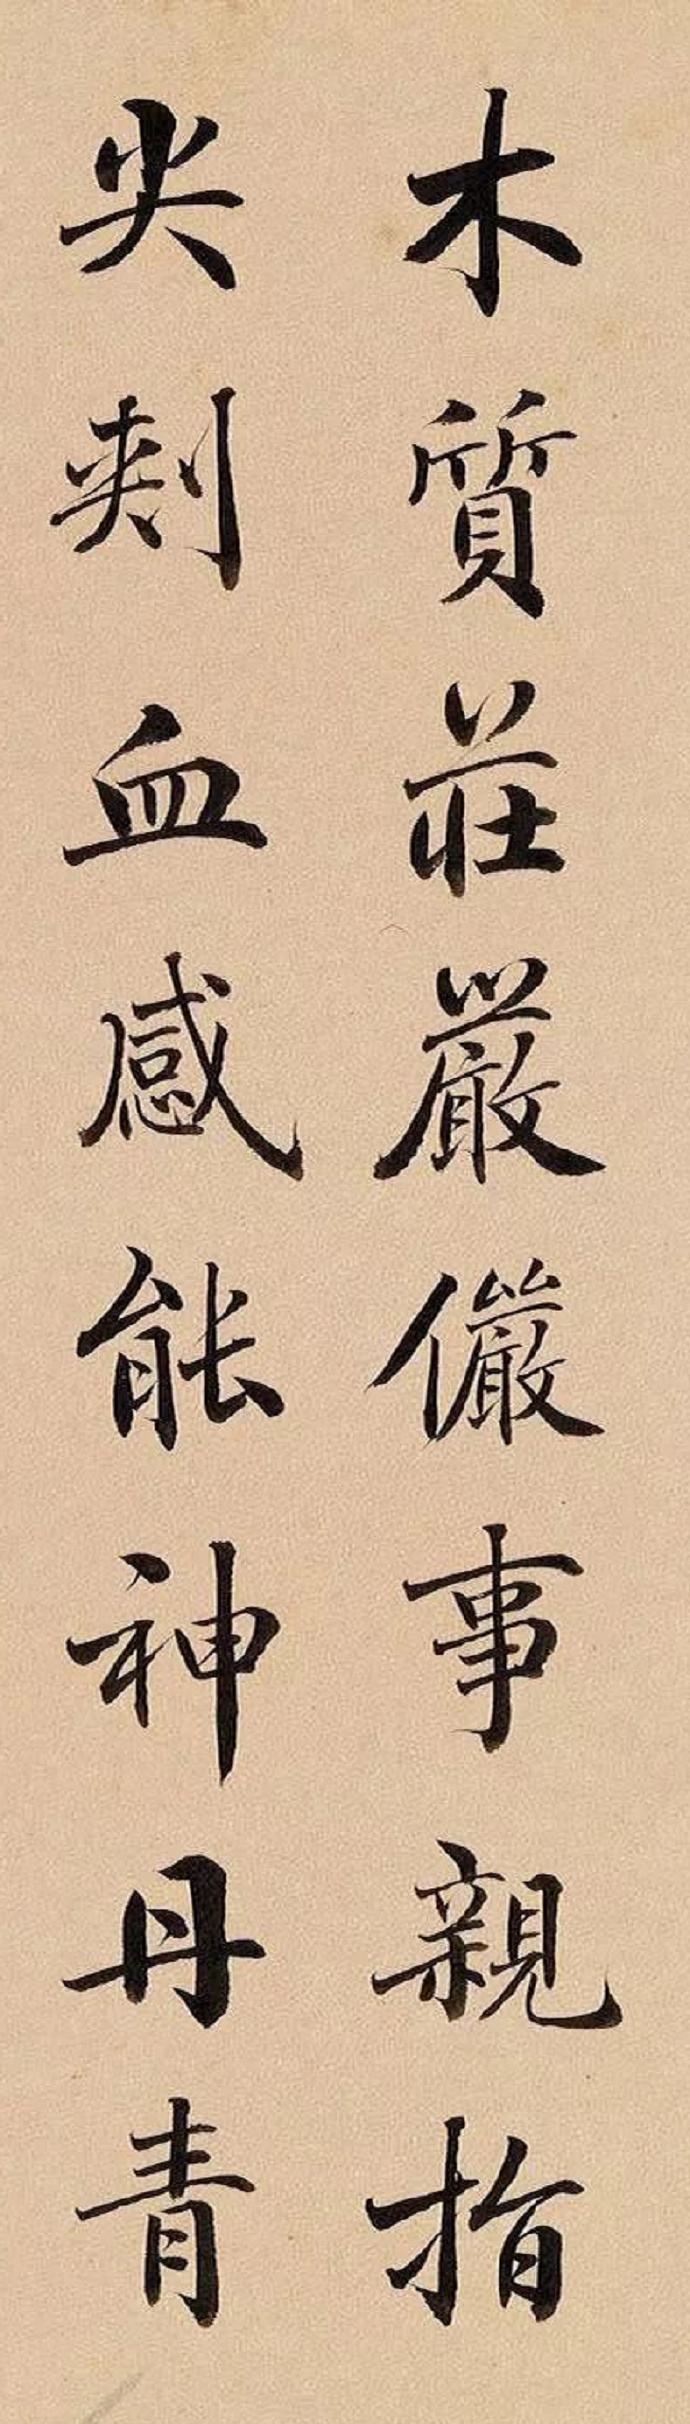 木質莊嚴儼事親指
尖刺血感能神丹青